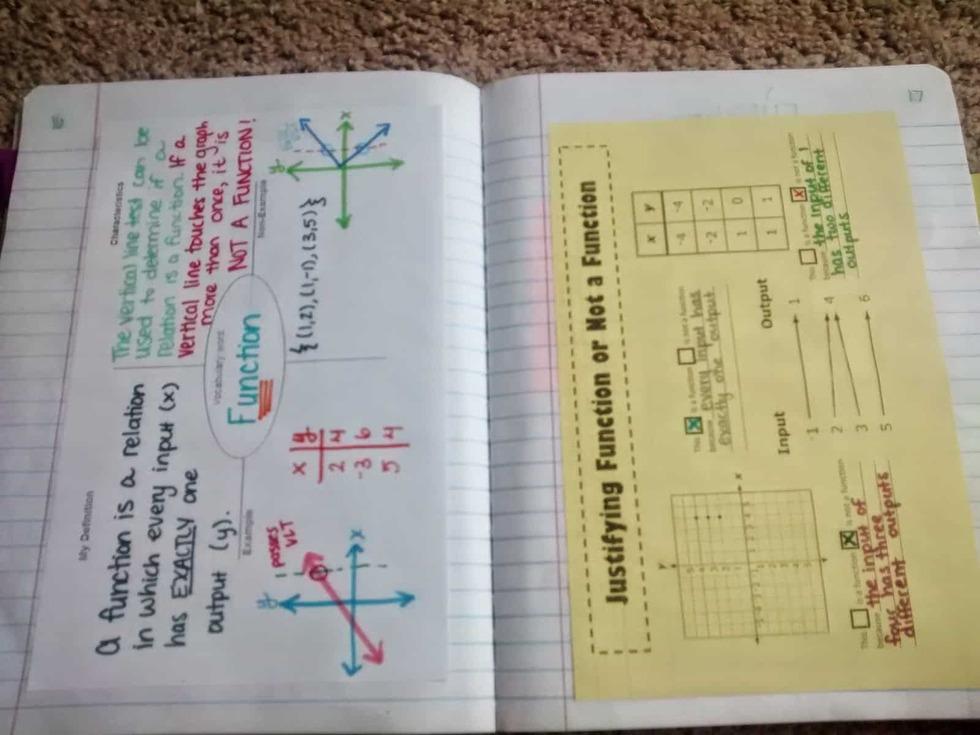 My Definition
a function is a relation
in which every input (x)
has EXACTLY one
output (y).
Characteristics
The vertical line test can be
used to determine if a
relation is a function. If a
vertical line touches the graph
more than once, it is
NOT A FUNCTION!
Vocabulary Word
Function
Example
passes
VLT
y
x
x y
2 4
-3 6
5 4
Non-Example
{(1,2),(1,-1),(3,5)}
y
x
Justifying Function or Not a Function
This is a function X is not a function
because the input of
four has three
different outputs
This X is a function is not a function
because every input has
exactly one output.
x y
-4 -4
-2 -2
1 0
1 1
Input Output
1 1
2 4
3 6
5
This is a function X is not a function
because the input of 1
has two different
outputs